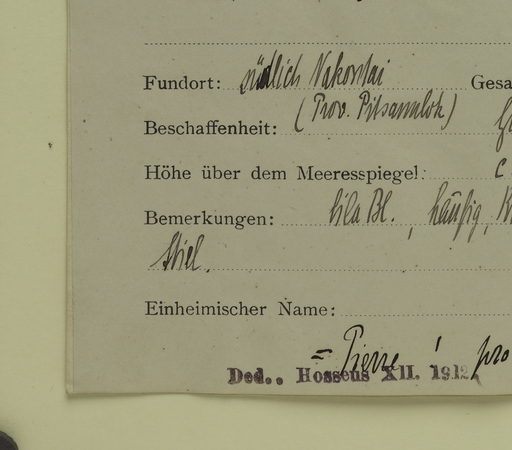 Fundort: südlich Nakontai Gesa
Beschaffenheit: (Prov. Pitsanulok)
Höhe über dem Meeresspiegel: c
Bemerkungen: lila Bl., häufig,
Stiel.
Einheimischer Name:
= Pierre pro
Ded.. Hosseus XII. 1912